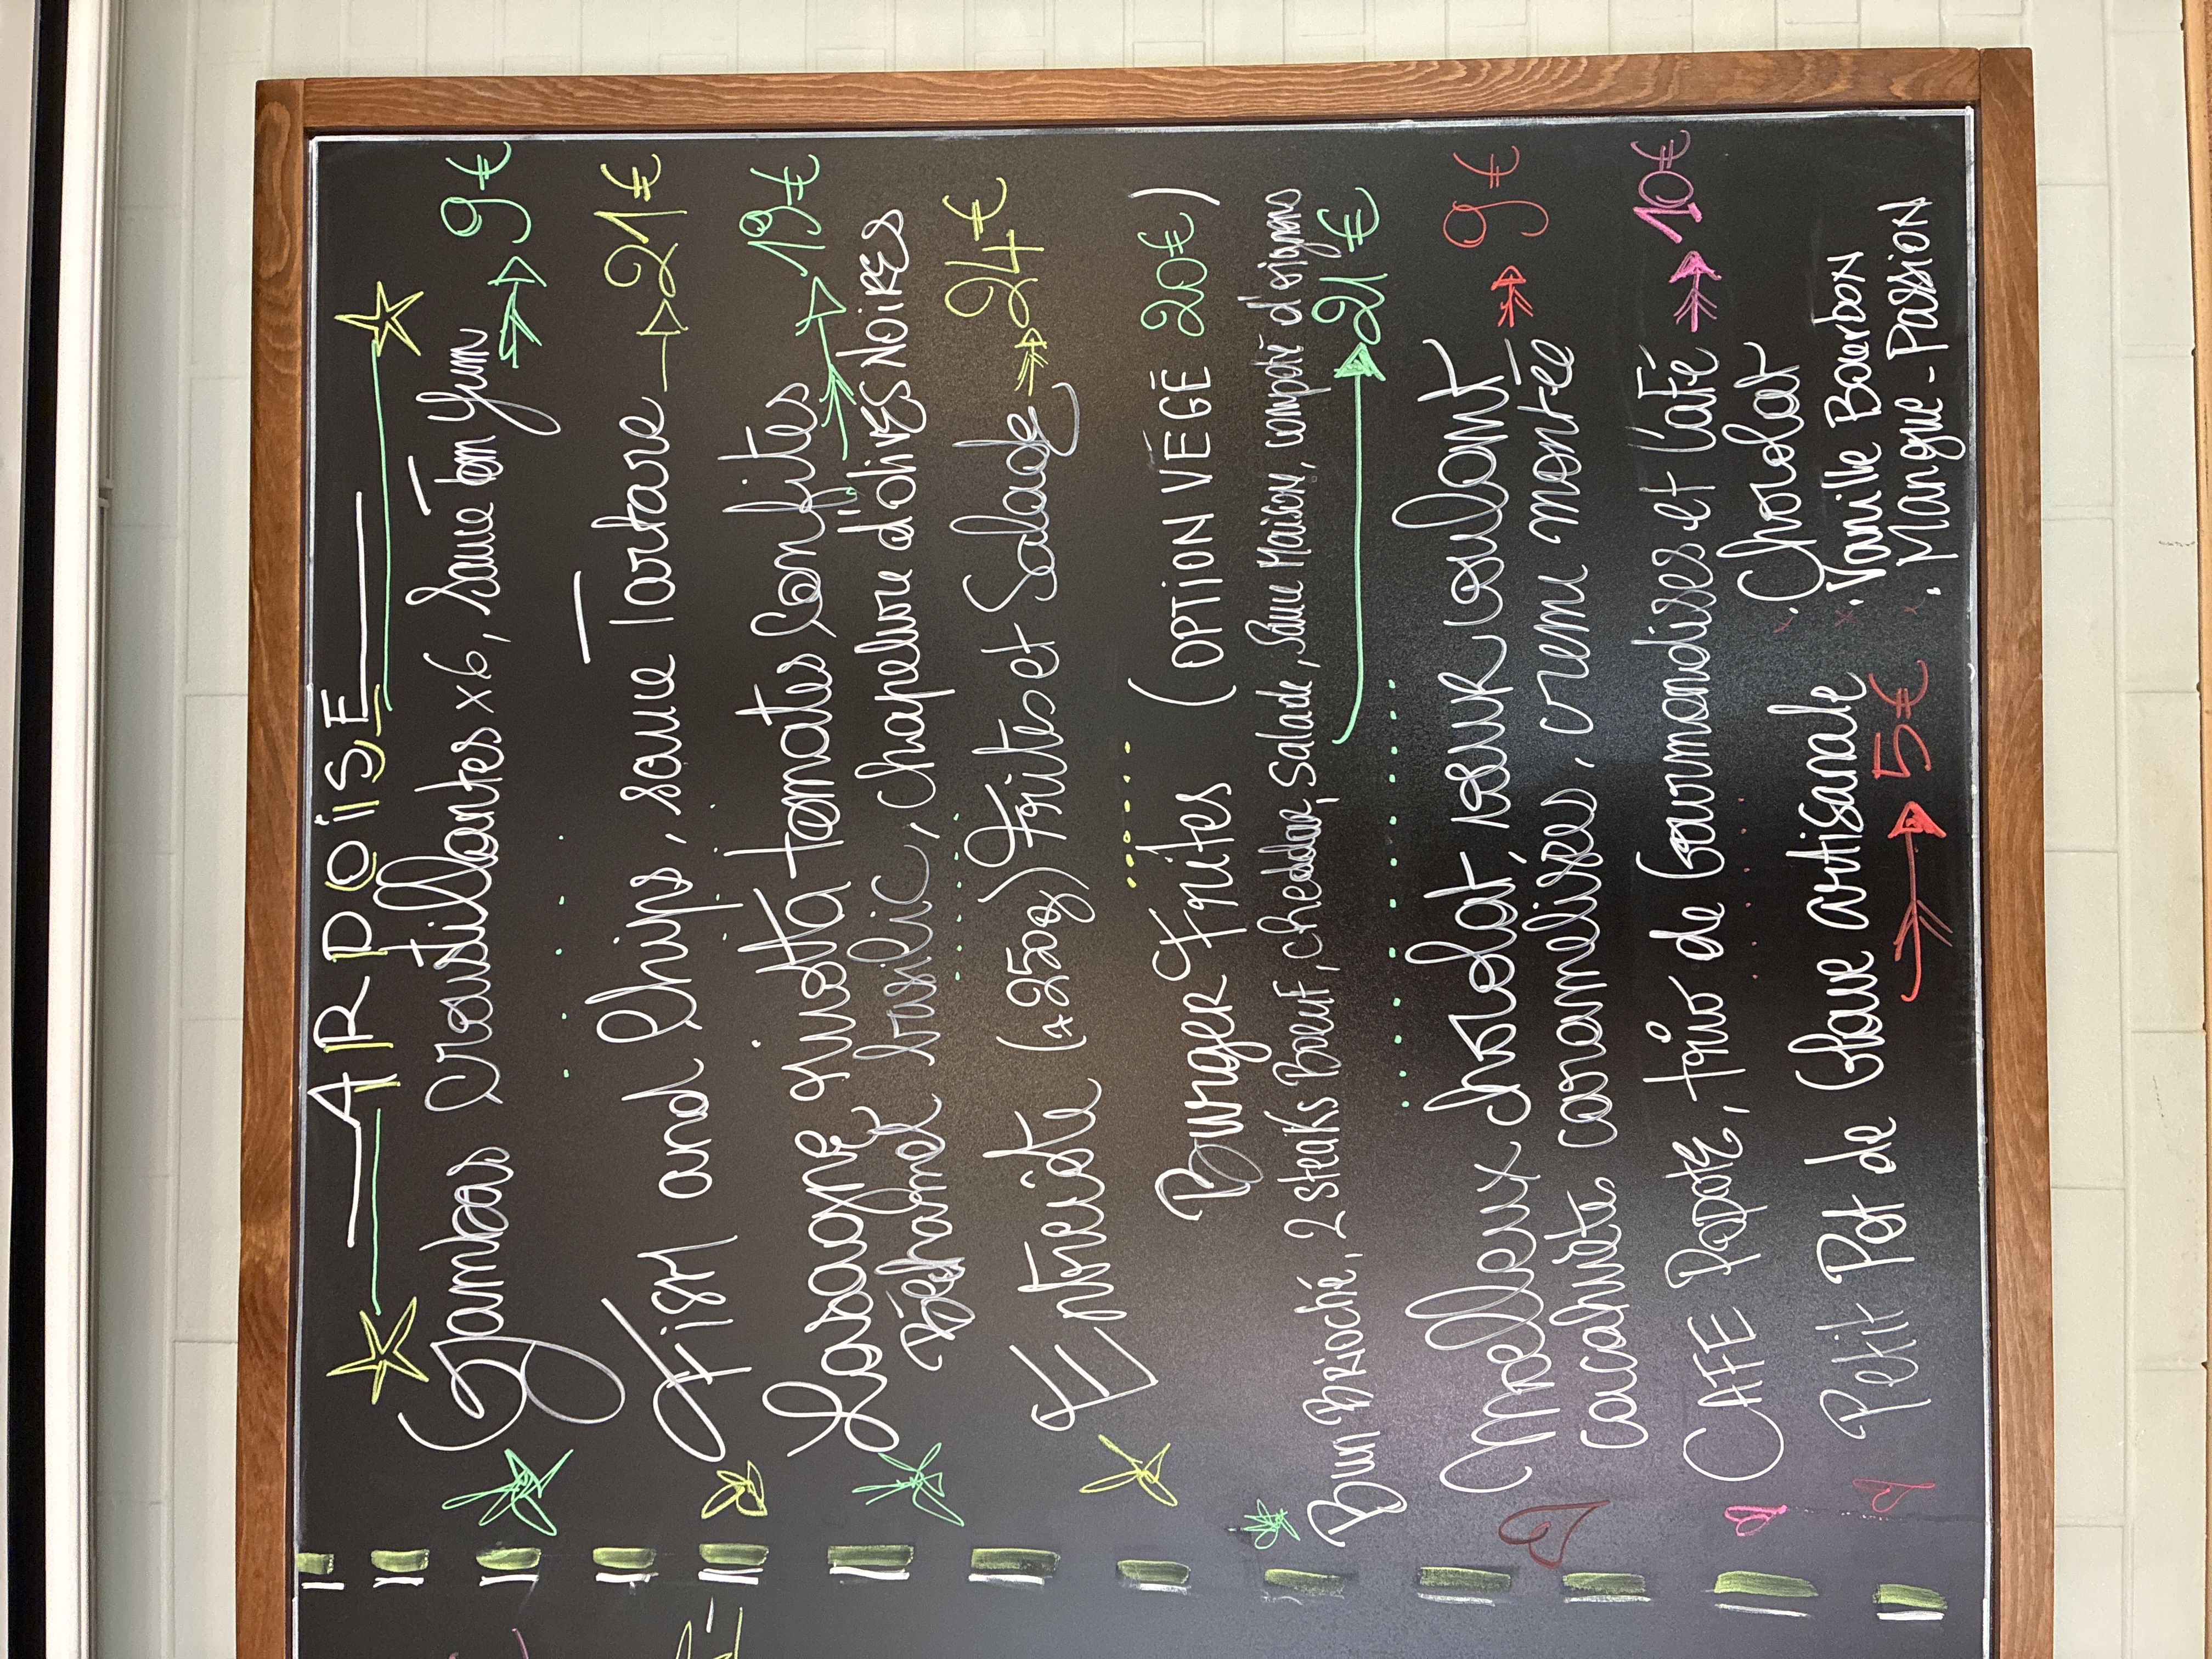 ARDOiSE
Gambas croustillantes x6, Sauce Tom Yum → 9€
Fish and Chips, sauce Tartare → 21€
Lasagne giusta tomates Confites → 19€
Béchamel basilic, chapelure d'olives Noires
Entrecôte (±250g) Frites et Salade → 24€
Burger Frites (OPTION VÉGÉ 20€)
Bun Brioché, 2 steaks Boeuf, cheddar, salade, Sauce Maison, compoté d'oignons
→ 21€
Moelleux chocolat, coeur coulant → 9€
cacahuète caramelisées, crem montée
CAFE Papote, trio de Gourmandises et Café → 10€
Petit Pot de Glace artisanale
→ 5€
. Chocolat
. Vanille Bourbon
. Mangue - Passion